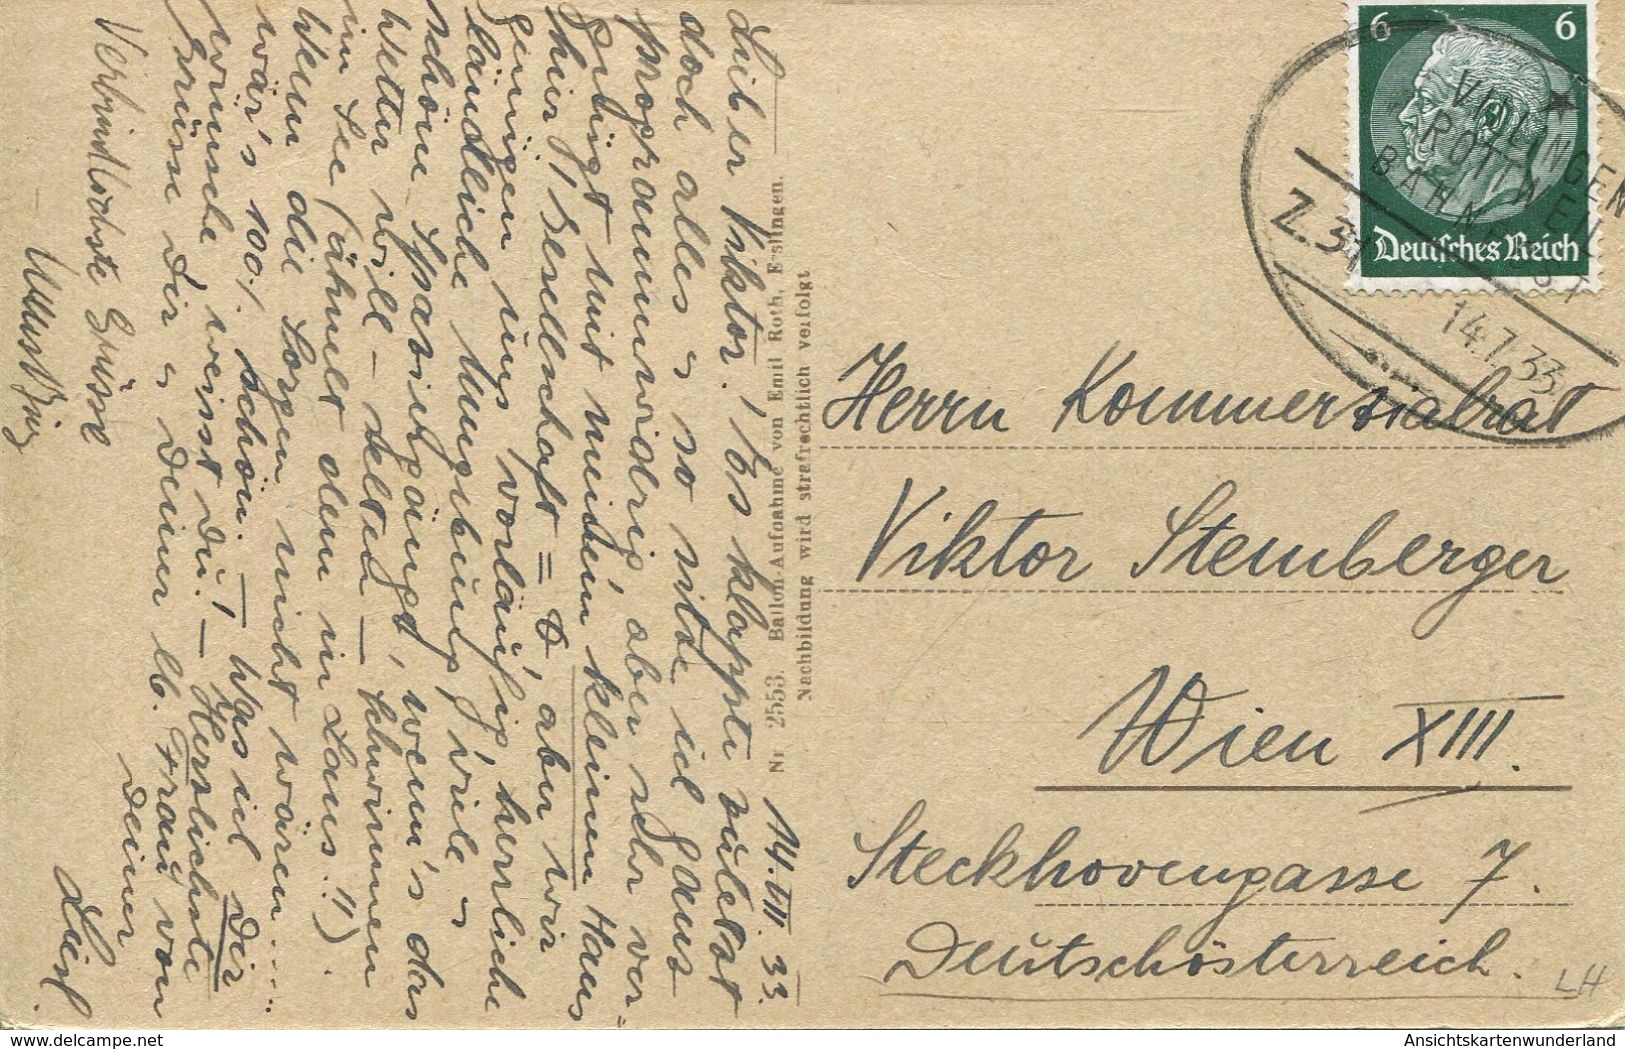 14.VII.33.
Lieber Viktor! Es klappte zuletzt
doch alles u so sitze ich ganz
programmwidrig, aber sehr ver-
gnügt mit meinem kleinen Haus
hier! Gesellschaft = 0, aber wir
genügen uns vorläufig, herrliche
ländliche Umgebung, viele u
schöne Spaziergänge, wenn's das
Wetter will – selten – schwimmen
im See (ähnelt dem in Lans!!)
Wenn die Sorgen nicht wären.....
wär's 100% schön. – Was ich Dir
wünsche, weisst Du! – Herzlichste
Grüsse Dir u Deiner lb. Frau von
Deiner
Verbindlichste Grüsse
Nr. 2553. Ballon-Aufnahme von Emil Roth, Esslingen.
Nachbildung wird strafrechtlich verfolgt
6 6
Deutsches Reich
VILLINGEN
ROTTWEIL
BAHNPOST
Z. 31
14.7.33
Herrn Kommerzialrat
Viktor Sternberger
Wien XIII.
Steckhovengasse 7.
Deutschösterreich.
LH
delcampe.net
Ansichtskartenwunderland